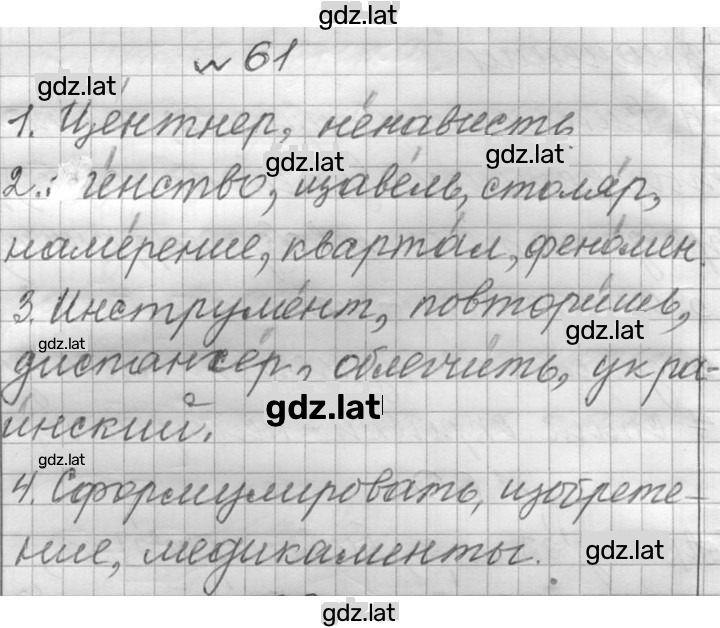 gdz.lat
№ 61
gdz.lat
1. Це́нтнер, не́нависть
gdz.lat gdz.lat
2. ге́нство, щаве́ль, столя́р,
наме́рение, кварта́л, фено́мен.
3. Инструме́нт, повтори́шь,
gdz.lat
диспансе́р, облегчи́ть, укра-
gdz.lat
и́нский.
gdz.lat
4. Сформулировать, изобрете-
ние, медикаменты.
gdz.lat
gdz.lat